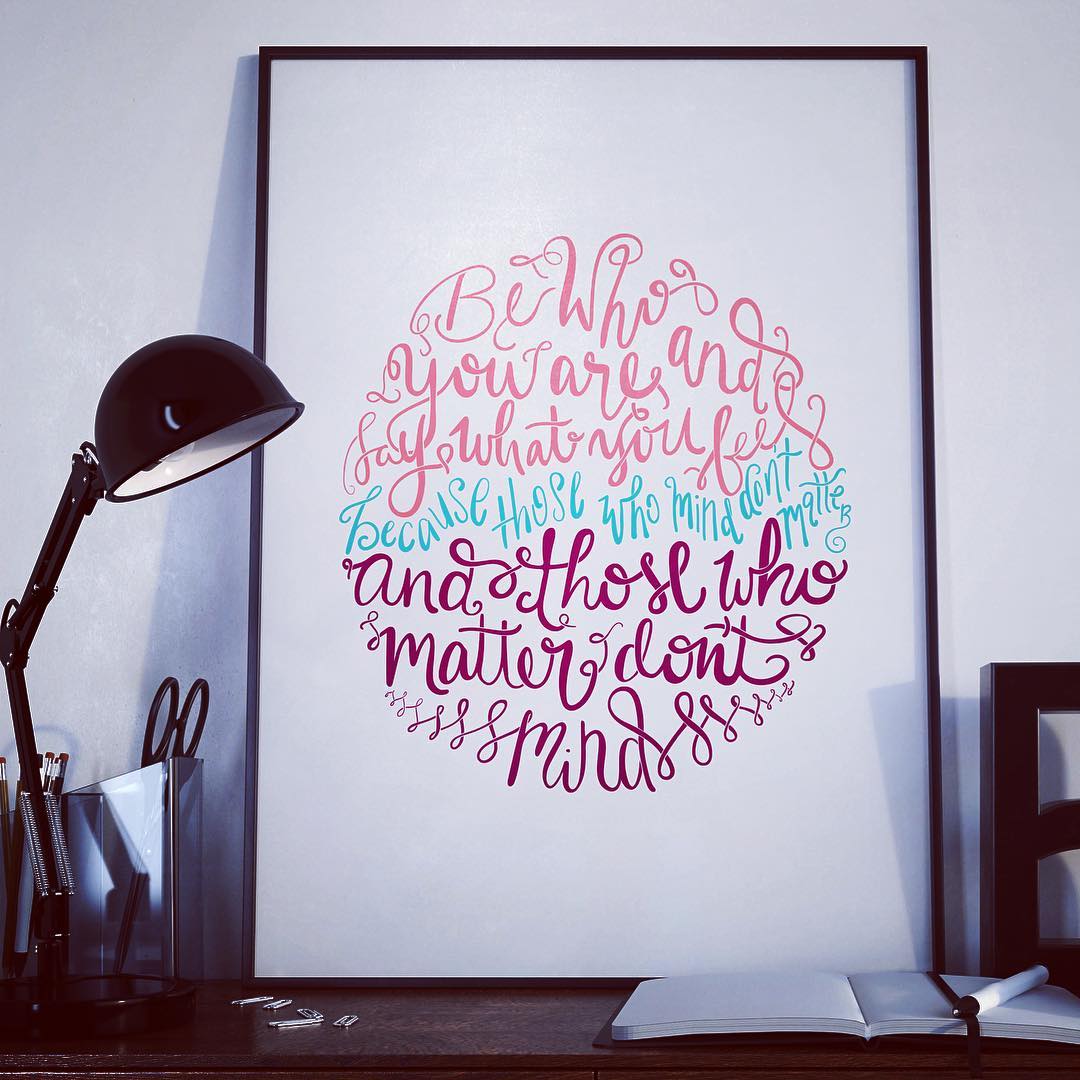 Be Who
you are and
say what you feel
because those who mind don't matteR
and those who
matter don't
mind